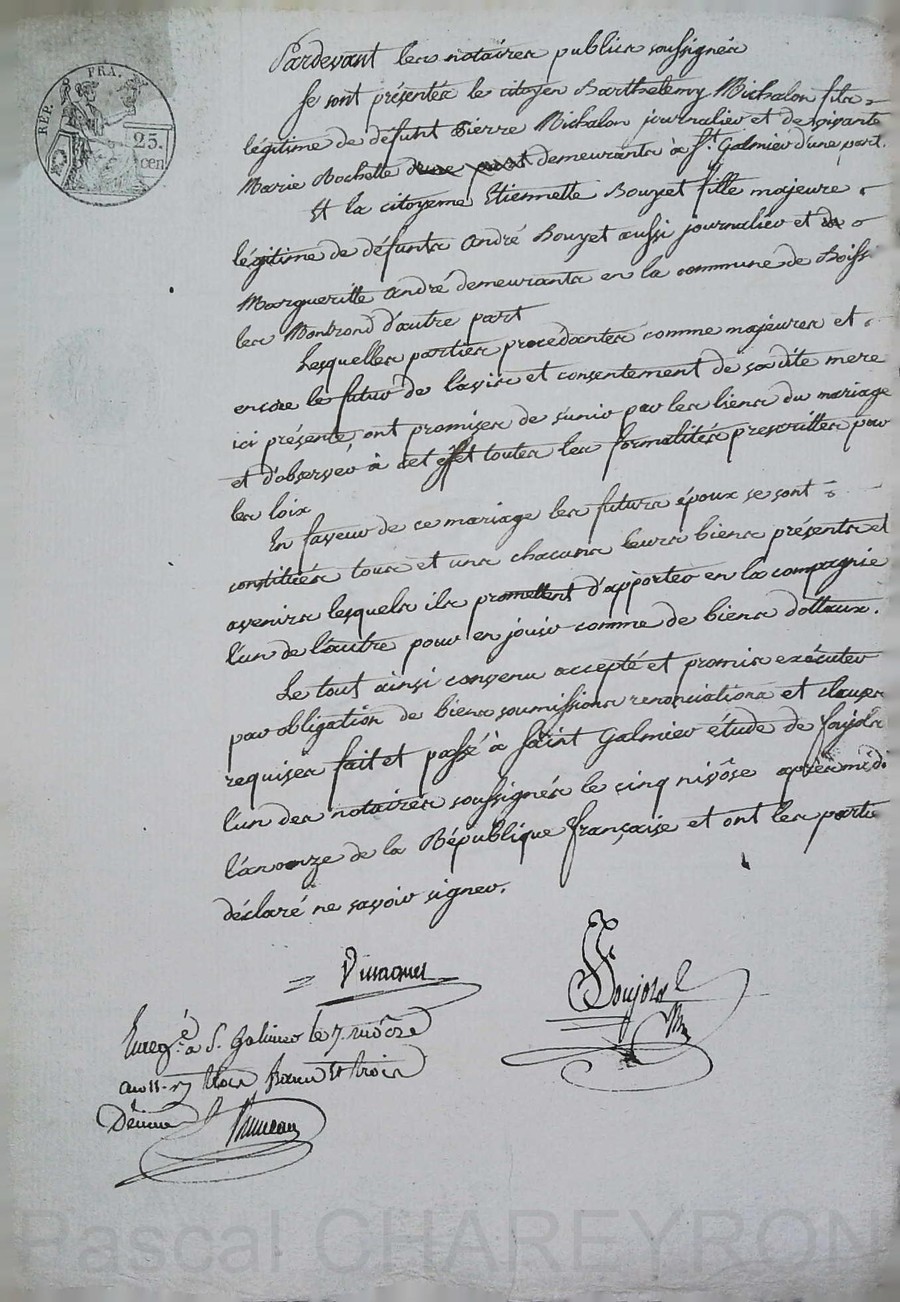 REP. FRA.
25.
cen
Pardevant les notaires publics soussignés
Se sont présentés le citoyen Barthelemy Michalon fils
légitime de défunt Pierre Michalon journalier et de vivante
Marie Rochette d'une part demeurants à St. Galmier d'une part.
Et la citoyene Etiennette Bouzet fille majeure
légitime de défunts André Bouzet aussi journalier et de
Margueritte André demeurants en la commune de Boiss
les Montrond d'autre part
Lesquelles parties procedantes comme majeures et
encore le futur de l'avis et consentement de sa dite mere
ici présente, ont promises de s'unir par les liens du mariage
et d'observér à cet effet toutes les formalités prescrittes par
les loix
En faveur de ce mariage les futurs époux se sont
constitués tous et uns chacuns leurs biens présents et
avenirs lesquels ils promettent d'apporter en la compagnie
l'un de l'autre pour en jouir comme de biens dottaux.
Le tout ainsi convenu accepté et promis exécuter
par obligation de biens soumissions renonciations et clauses
requises fait et passé à Saint Galmier étude de Soujols
l'un des notaires soussignés le cinq nivôse après midi
l'an onze de la République française et ont les partie
déclaré ne savoir signer.
Soujols
Enregé. a S. Galmier le 7. nivôse
an 11. r/ trois francs et trois
Décime
Bruneau
Pascal CHAREYRON